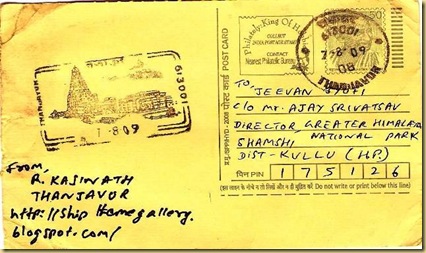 Philately-King Of H
CONTACT
Nearest Philatelic Bureau
613001
7-8-09
THANJAVUR
THANJAVUR
613001
7-8-09
POST CARD
पोस्ट कार्ड
TO,
JEEVAN JYOTI
C/O Mr. AJAY SRIVATSAV
DIRECTOR GREATER HIMALAYA
SHAMSHI NATIONAL PARK
DIST- KULLU (HP.)
पिन PIN 175126
(इस लाइन के नीचे न तो लिखें और न ही मुद्रित करें Do not write or print below this line)
From,
R. KASINATH
THANJAVUR
http://shipthemegallery.
blogspot.com/